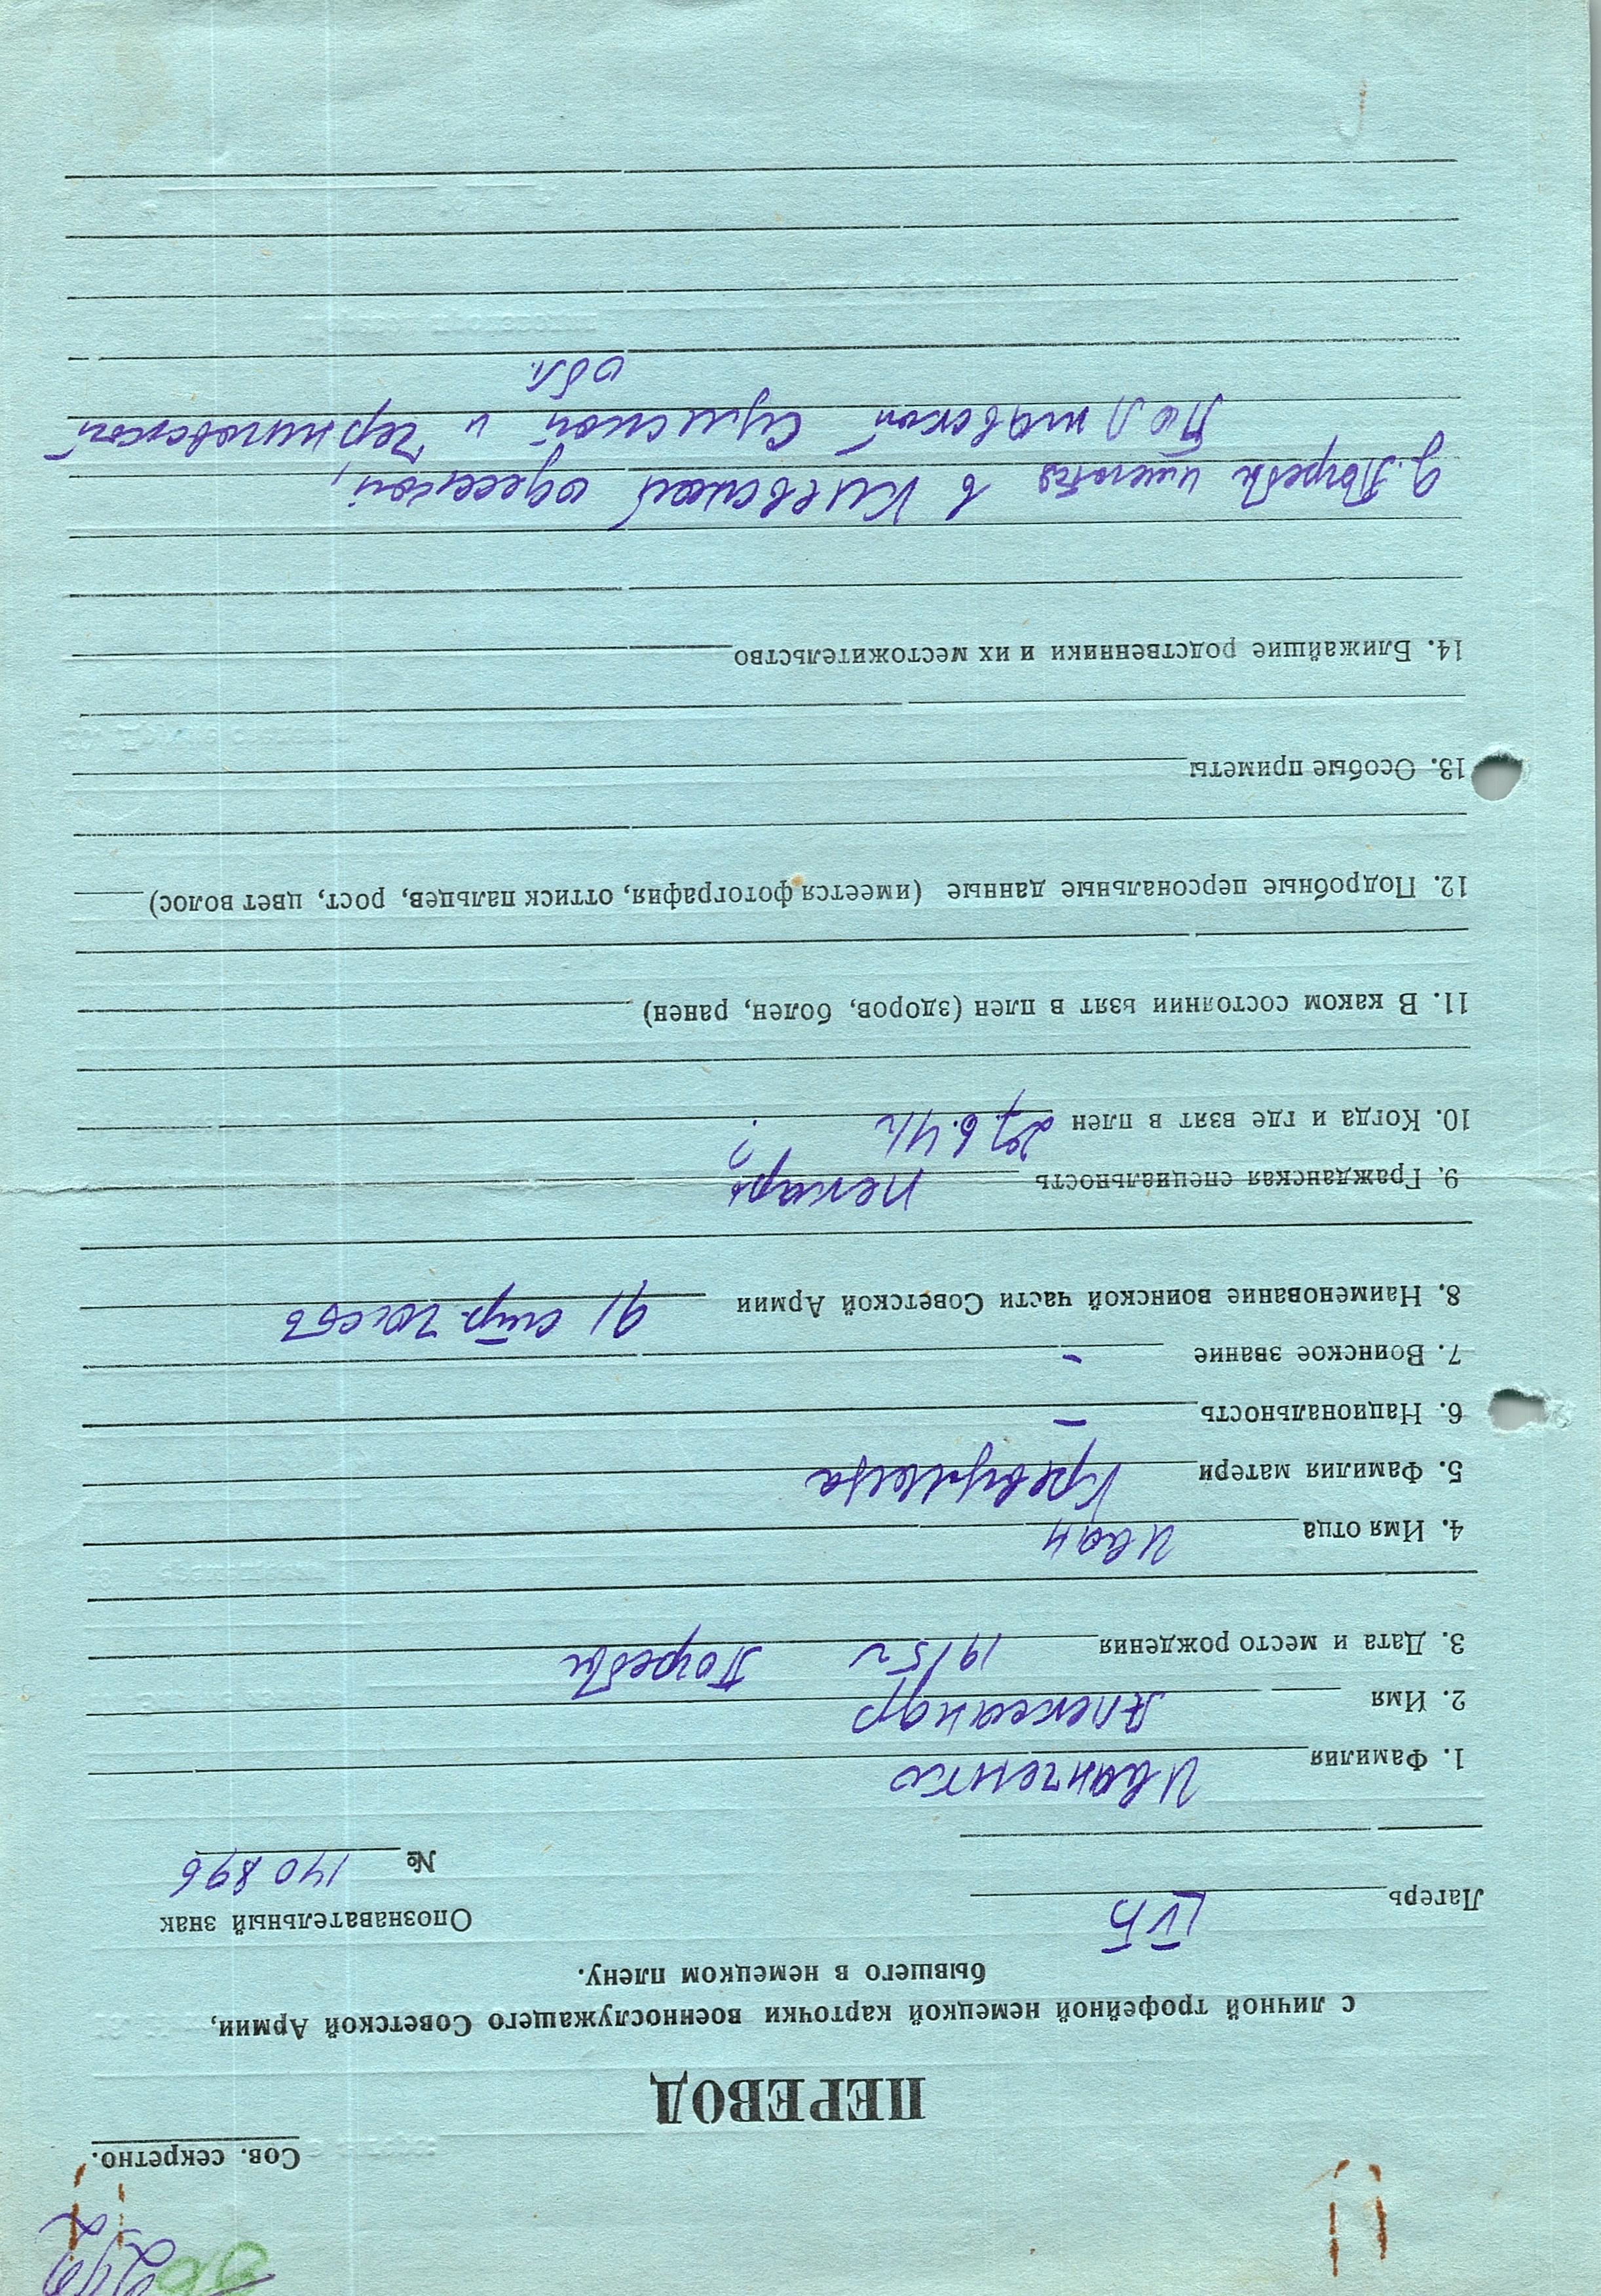 Сов. секретно.
ПЕРЕВОД
с личной трофейной немецкой карточки военнослужащего Советской Армии,
бывшего в немецком плену.
Лагерь IVБ
Опознавательный знак
№ 140896
1. Фамилия Иванченко
2. Имя Александр
3. Дата и место рождения 1915 г Погребы
4. Имя отца Иван
5. Фамилия матери
6. Национальность –
7. Воинское звание –
8. Наименование воинской части Советской Армии 91 стр.
9. Гражданская специальность пекарь
10. Когда и где взят в плен 29.6.41г ?
11. В каком состоянии взят в плен (здоров, болен, ранен)
12. Подробные персональные данные (имеется фотография, оттиск пальцев, рост, цвет волос)
13. Особые приметы
14. Ближайшие родственники и их местожительство
д. Погребы имеются в Киевской одесской,
Полтавской Сумской и Черниговской
обл.